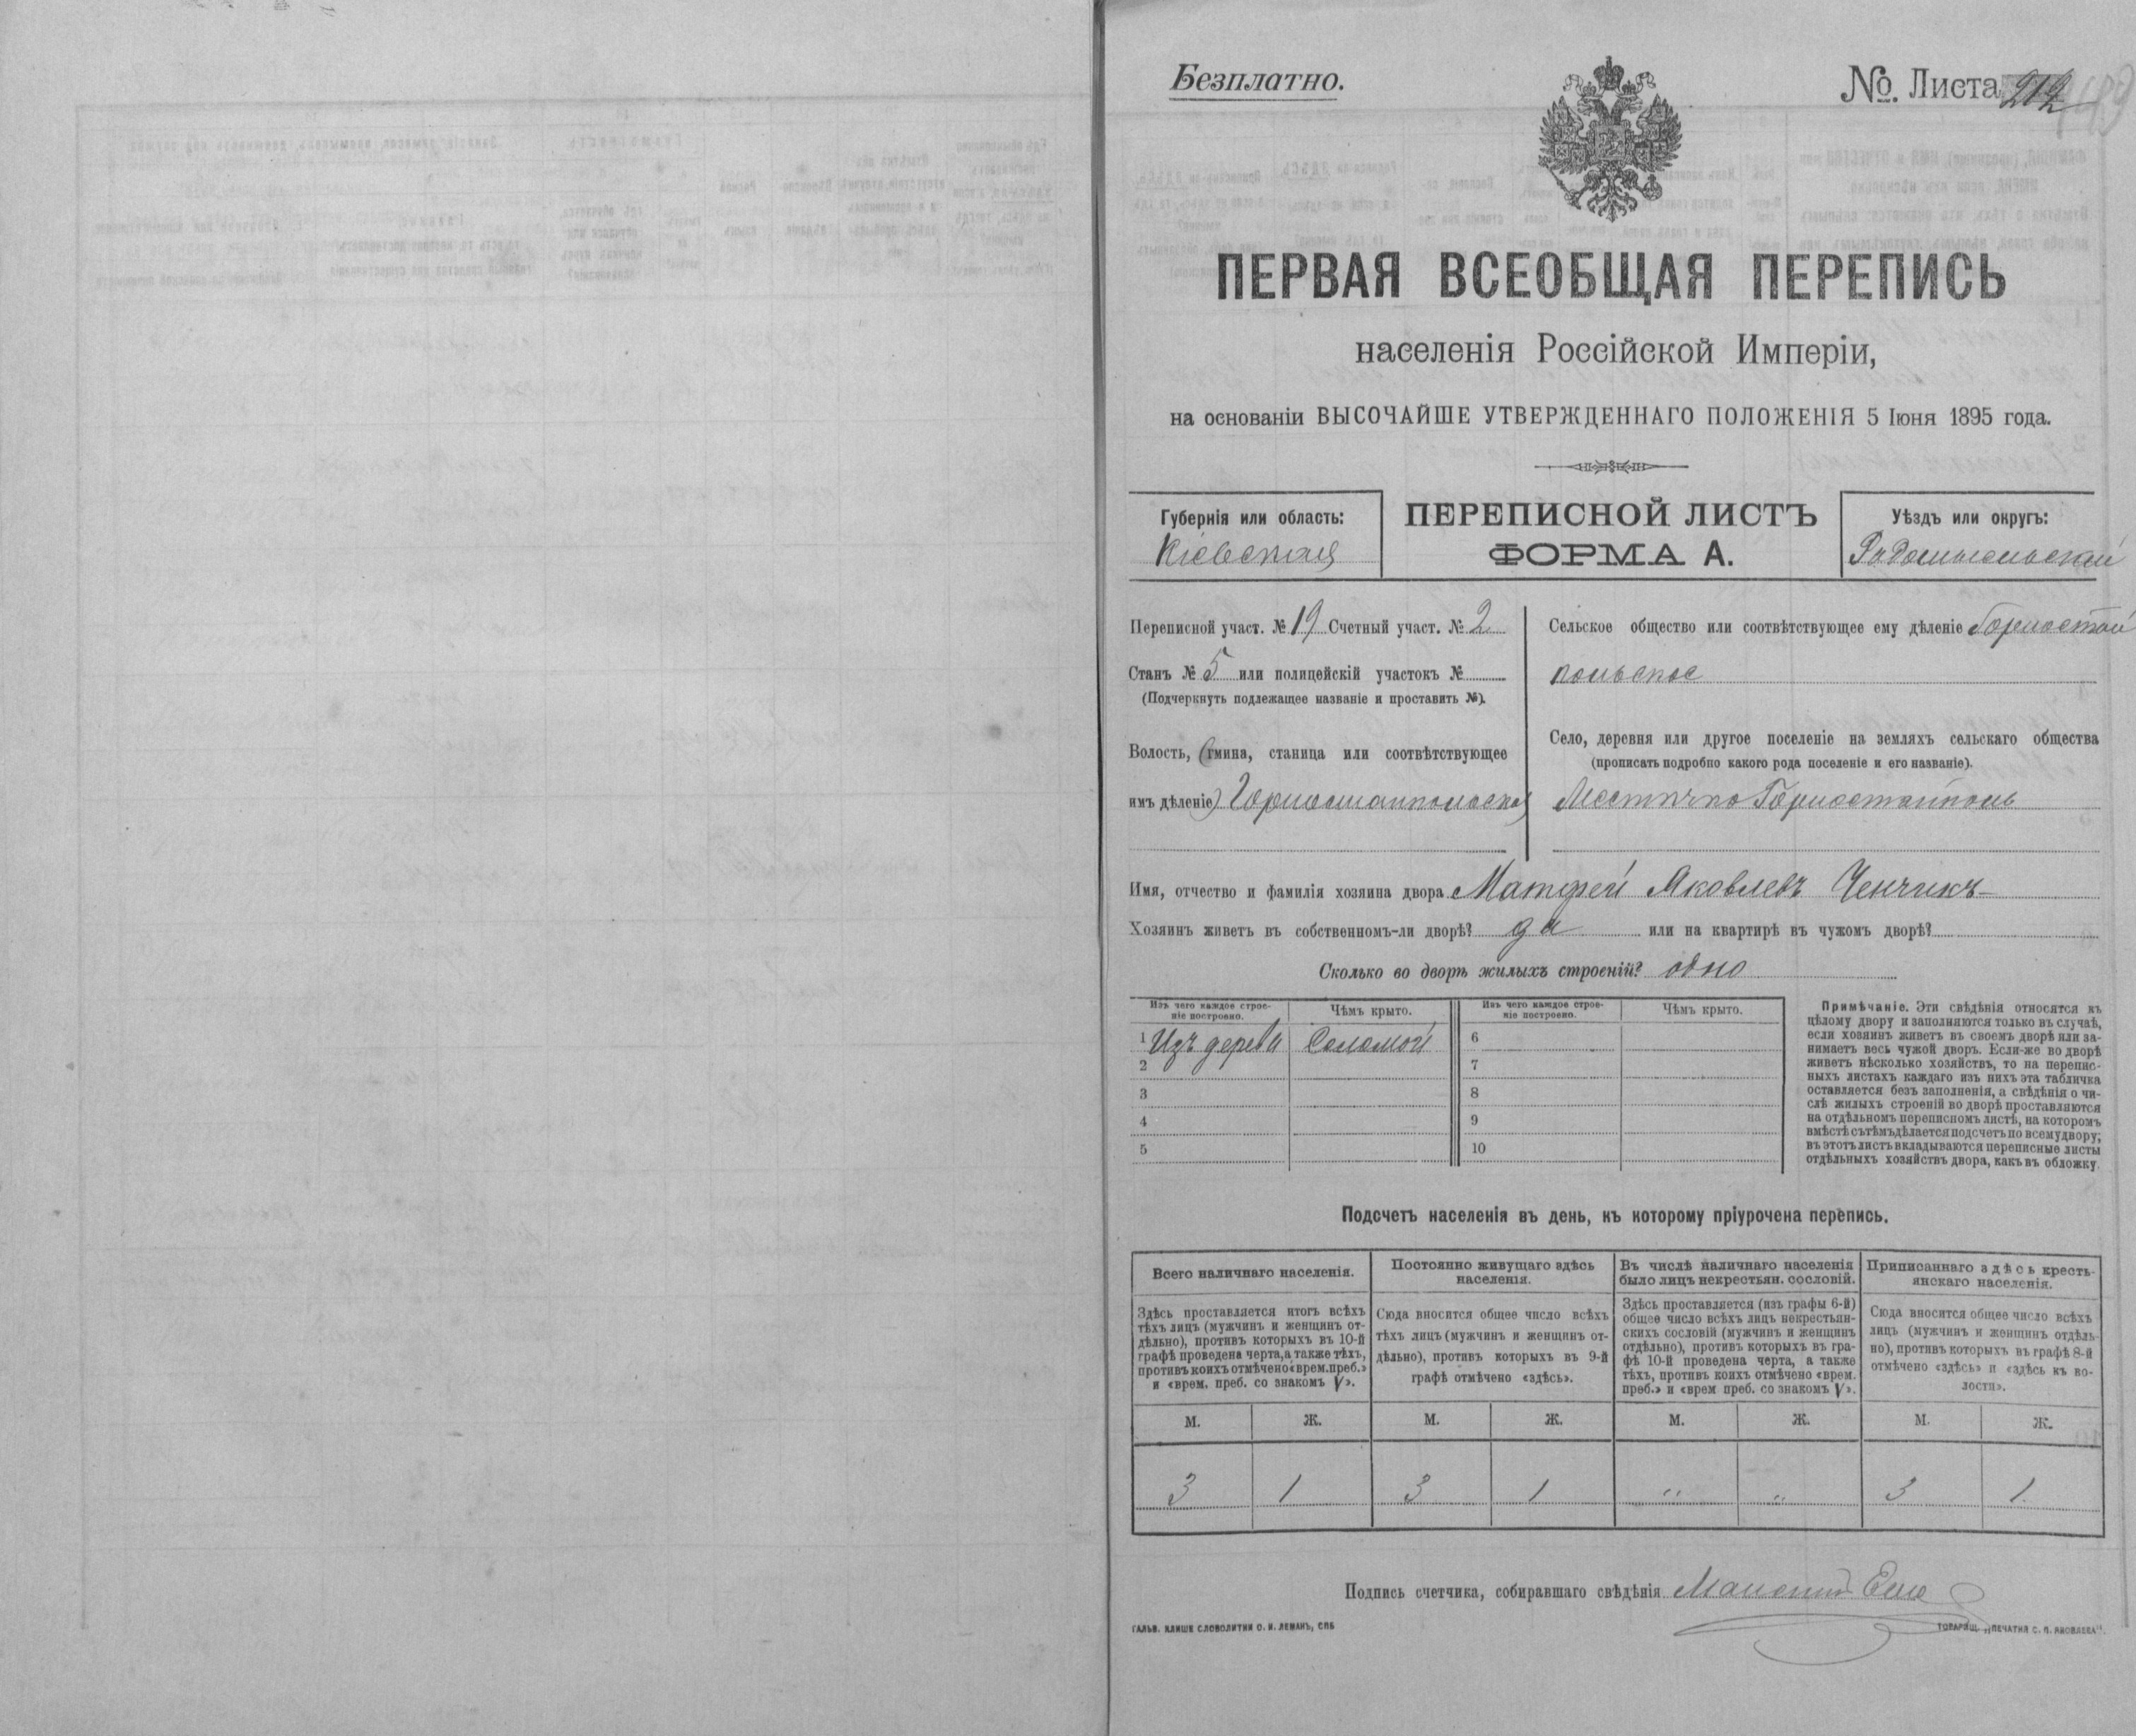 Безплатно.
№ Листа 212
ПЕРВАЯ ВСЕОБЩАЯ ПЕРЕПИСЬ
населенія Россійской Имперіи,
на основаніи ВЫСОЧАЙШЕ УТВЕРЖДЕННАГО ПОЛОЖЕНІЯ 5 Іюня 1895 года.
Губернія или область:
Кіевская
ПЕРЕПИСНОЙ ЛИСТЪ
ФОРМА А.
Уѣздъ или округъ:
Радомысльскій
Переписной участ. № 19 Счетный участ. № 2
Станъ № 5 или полицейскій участокъ №
(Подчеркнуть подлежащее названіе и проставить №).
Волость, (гмина, станица или соотвѣтствующее
имъ дѣленіе) Горностайпольская
Сельское общество или соотвѣтствующее ему дѣленіе Горностай
польское
Село, деревня или другое поселеніе на земляхъ сельскаго общества
(прописать подробно какого рода поселеніе и его названіе).
Местечко Горностайполь
Имя, отчество и фамилія хозяина двора Матфей Яковлевъ Ченчикъ
Хозяинъ живетъ въ собственномъ-ли дворѣ? да или на квартирѣ въ чужомъ дворѣ?
Сколько во дворѣ жилыхъ строеній? одно
Изъ чего каждое строе-
ніе построено.
Чѣмъ крыто.
Изъ чего каждое строе-
ніе построено.
Чѣмъ крыто.
1 Изъ дерева Соломой 6
2 7
3 8
4 9
5 10
Примѣчаніе. Эти свѣдѣнія относятся къ
цѣлому двору и заполняются только въ случаѣ,
если хозяинъ живетъ въ своемъ дворѣ или за-
нимаетъ весь чужой дворъ. Если-же во дворѣ
живетъ нѣсколько хозяйствъ, то на перепис-
ныхъ листахъ каждаго изъ нихъ эта табличка
оставляется безъ заполненія, а свѣдѣнія о чи-
слѣ жилыхъ строеній во дворѣ проставляются
на отдѣльномъ переписномъ листѣ, на которомъ
вмѣстѣ сътѣмъ дѣлается подсчетъ по всему двору;
въ этотъ листъ вкладываются переписные листы
отдѣльныхъ хозяйствъ двора, какъ въ обложку.
Подсчетъ населенія въ день, къ которому пріурочена перепись.
Всего наличнаго населенія.
Здѣсь проставляется итогъ всѣхъ
тѣхъ лицъ (мужчинъ и женщинъ от-
дѣльно), противъ которыхъ въ 10-й
графѣ проведена черта, а также тѣхъ,
противъ коихъ отмѣчено «врем. преб.»
и «врем. преб. со знакомъ V».
Постоянно живущаго здѣсь
населенія.
Сюда вносится общее число всѣхъ
тѣхъ лицъ (мужчинъ и женщинъ от-
дѣльно), противъ которыхъ въ 9-й
графѣ отмѣчено «здѣсь».
Въ числѣ наличнаго населенія
было лицъ некрестьян. сословій.
Здѣсь проставляется (изъ графы 6-й)
общее число всѣхъ лицъ некрестьян-
скихъ сословій (мужчинъ и женщинъ
отдѣльно), противъ которыхъ въ гра-
фѣ 10-й проведена черта, а также
тѣхъ, противъ коихъ отмѣчено «врем.
преб.» и «врем преб. со знакомъ V».
Приписаннаго здѣсь кресть-
янскаго населенія.
Сюда вносится общее число всѣхъ
лицъ (мужчинъ и женщинъ отдѣль-
но), противъ которыхъ въ графѣ 8-й
отмѣчено «здѣсь» и «здѣсь къ во-
лости».
М. Ж. М. Ж. М. Ж. М. Ж.
3 1 3 1 " " 3 1
Подпись счетчика, собиравшаго свѣдѣнія
ГАЛЬВ. КЛИШЕ СЛОВОЛИТНИ О. И. ЛЕМАНЪ, СПБ
ТОВАРИЩ. „ПЕЧАТНЯ С. П. ЯКОВЛЕВА".